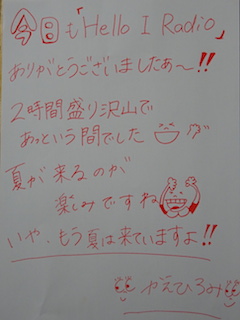 今日も「Hello I Radio」
ありがとうございましたぁ〜!!
2時間盛り沢山で
あっという間でした
夏が来るのが
楽しみですね
いや、もう夏は来ていますよ!!
やえひろみ